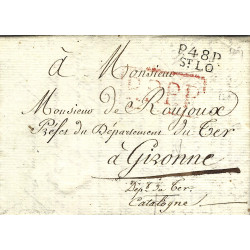 P.48.P.
ST LO
à Monsieur
P.P.P.P.
Monsieur de Roujoux
Préfet du Département du Ter
à Gironne
Dépt. du Ter.
Catalogne